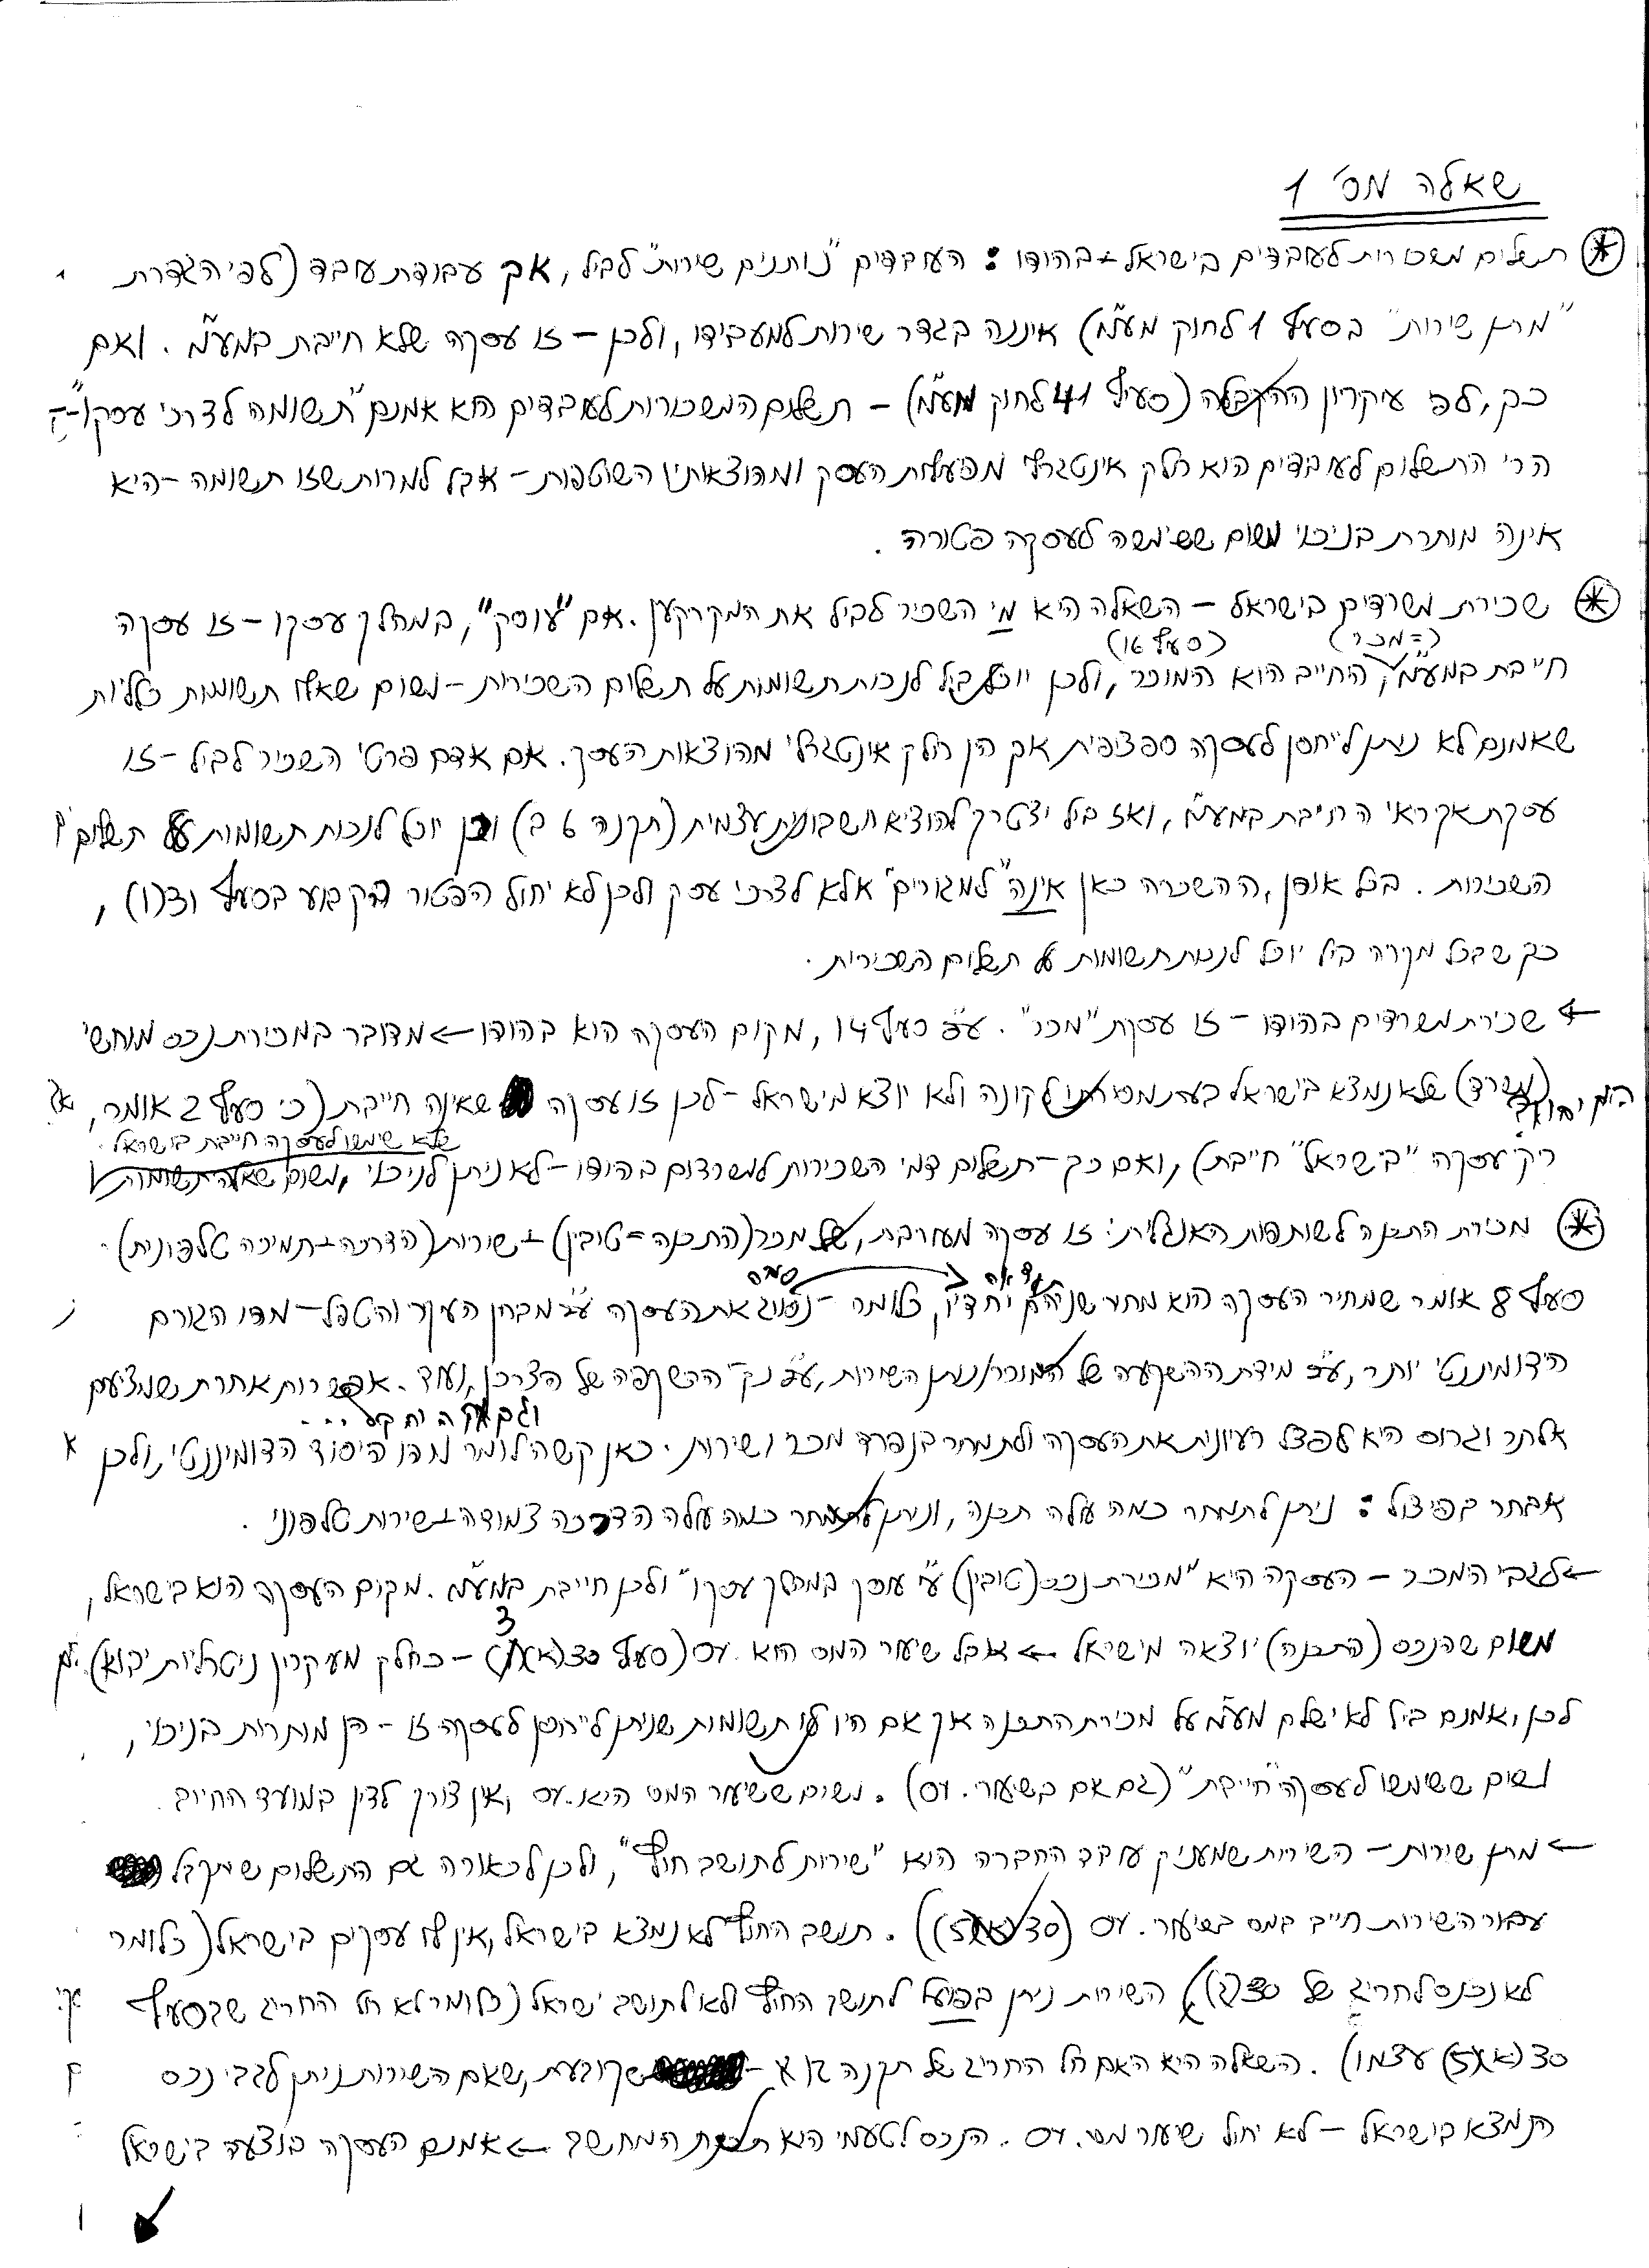 שאלה מס' 1
תשלום משכורות לעובדים בישראל + בהודו: העובדים "נותנים שירות" לביל, אך עבודת עובד (לפי הגדרת
"מתן שירות" בסעיף 1 לחוק מע"מ) איננה בגדר שירות למעבידו, ולכן – זו עסקה שלא חייבת במע"מ. ואם
כך, לפי עיקרון ההקבלה (סעיף 41 לחוק מע"מ) – תשלום המשכורות לעובדים הוא אמנם "תשומה לצרכי עסקו" –
הרי התשלום לעובדים הוא חלק אינטגרלי מפעילות העסק ומהוצאותיו השוטפות – אבל למרות שזו תשומה – היא
אינה מותרת בניכוי משום ששימשה לעסקה פטורה.
שכירת משרדים בישראל – השאלה היא מי השכיר לביל את המקרקעין. אם "עוסק", במהלך עסקו – זו עסקה
(= מכר) (סעיף 16)
חייבת במע"מ, החייב הוא המוכר, ולכן יוכל ביל לנכות תשומות על תשלום השכירות – משום שאלו תשומות כלליות
שאמנם לא ניתן לייחסן לעסקה ספציפית אך הן חלק אינטגרלי מהוצאות העסק. אם אדם פרטי השכיר לביל – זו
עסקת אקראי החייבת במע"מ, ואז ביל יצטרך להוציא חשבונית עצמית (תקנה 6ב) וכן יוכל לנכות תשומות על תשלום
השכירות. בכל אופן, ההשכרה כאן אינה "למגורים" אלא לצרכי עסק ולכן לא יחול הפטור הקבוע בסעיף 31(1),
כך שבכל מקרה ביל יוכל לנכות תשומות על תשלום השכירות.
← שכירת משרדים בהודו – זו עסקת "מכר". עפ"י סעיף 14, מקום העסקה הוא בהודו ← מדובר במכירת נכס מוחשי
(משרד) שלא נמצא בישראל בעת מסירתו לקונה ולא יוצא מישראל – לכן זו עסקה שאינה חייבת (כי סעיף 2 אומר,
שלא שימשו לעסקה חייבת בישראל.
רק עסקה "בישראל" חייבת), ואם כך – תשלום דמי השכירות למשרדים בהודו – לא ניתן לניכוי, משום
מכירת התכנה לשותפות האנגלית: זו עסקה מעורבת, של מכר (התכנה = טובין) + שירות (הדרכה + תמיכה טלפונית).
סעיף 8 אומר שמחיר העסקה הוא מחיר שניהם יחדיו, כלומר – נסווג את העסקה ע"פ מבחן העיקר והטפל – מהו הגורם
הדומיננטי יותר, עפ"י מידת ההשקעה של המוכר/נותן השירות, עפ"י נק' ההשקפה של הצרכן, ועוד. אפשרות אחרת שמציעים
אלתר וגרוס היא לפצל רעיונית את העסקה ולתמחר בנפרד מכר ושירות. כאן קשה לומר מהו היסוד הדומיננטי, ולכן
אבחר בפיצול: ניתן לתמחר כמה עולה תכנה, וניתן לתמחר כמה עולה הדרכה צמודה + שירות טלפוני.
← לגבי המכר – העסקה היא "מכירת נכס (טובין) ע"י עוסק במהלך עסקו" ולכן חייבת במע"מ. מקום העסקה הוא בישראל,
משום שהנכס (התכנה) יוצאה מישראל ← אבל שיעור המס הוא 0% (סעיף 30(א)(3) – כחלק מעקרון ניטרליות יבוא).
לכן, אמנם ביל לא ישלם מע"מ על מכירת התכנה אך אם היו לו תשומות שניתן לייחסן לעסקה זו – הן מותרות בניכוי,
משום ששימשו לעסקה "חייבת" (גם אם בשיעור 0%). משום ששיעור המס הוא 0%, אין צורך לדון במועד החיוב.
← מתן שירות – השירות שמעניק עובד החברה הוא "שירות לתושב חוץ", ולכן לכאורה גם התשלום שיתקבל
עבור השירות חייב במס בשיעור 0% (30(א)(5)). תושב החוץ לא נמצא בישראל, אין לו עסקים בישראל (כלומר
לא נכנס לחריג של 30(ב)), השירות ניתן בפועל לתושב החוץ ולא לתושב ישראל (כלומר לא חל החריג שבסעיף
30(א)(5) עצמו). השאלה היא האם חל החריג של תקנה 12א – שקובעת, שאם השירות ניתן לגבי נכס
הנמצא בישראל – לא יחול שיעור מס 0%. הנכס לטעמי הוא תוכנת המחשב ← אמנם העסקה בוצעה בישראל